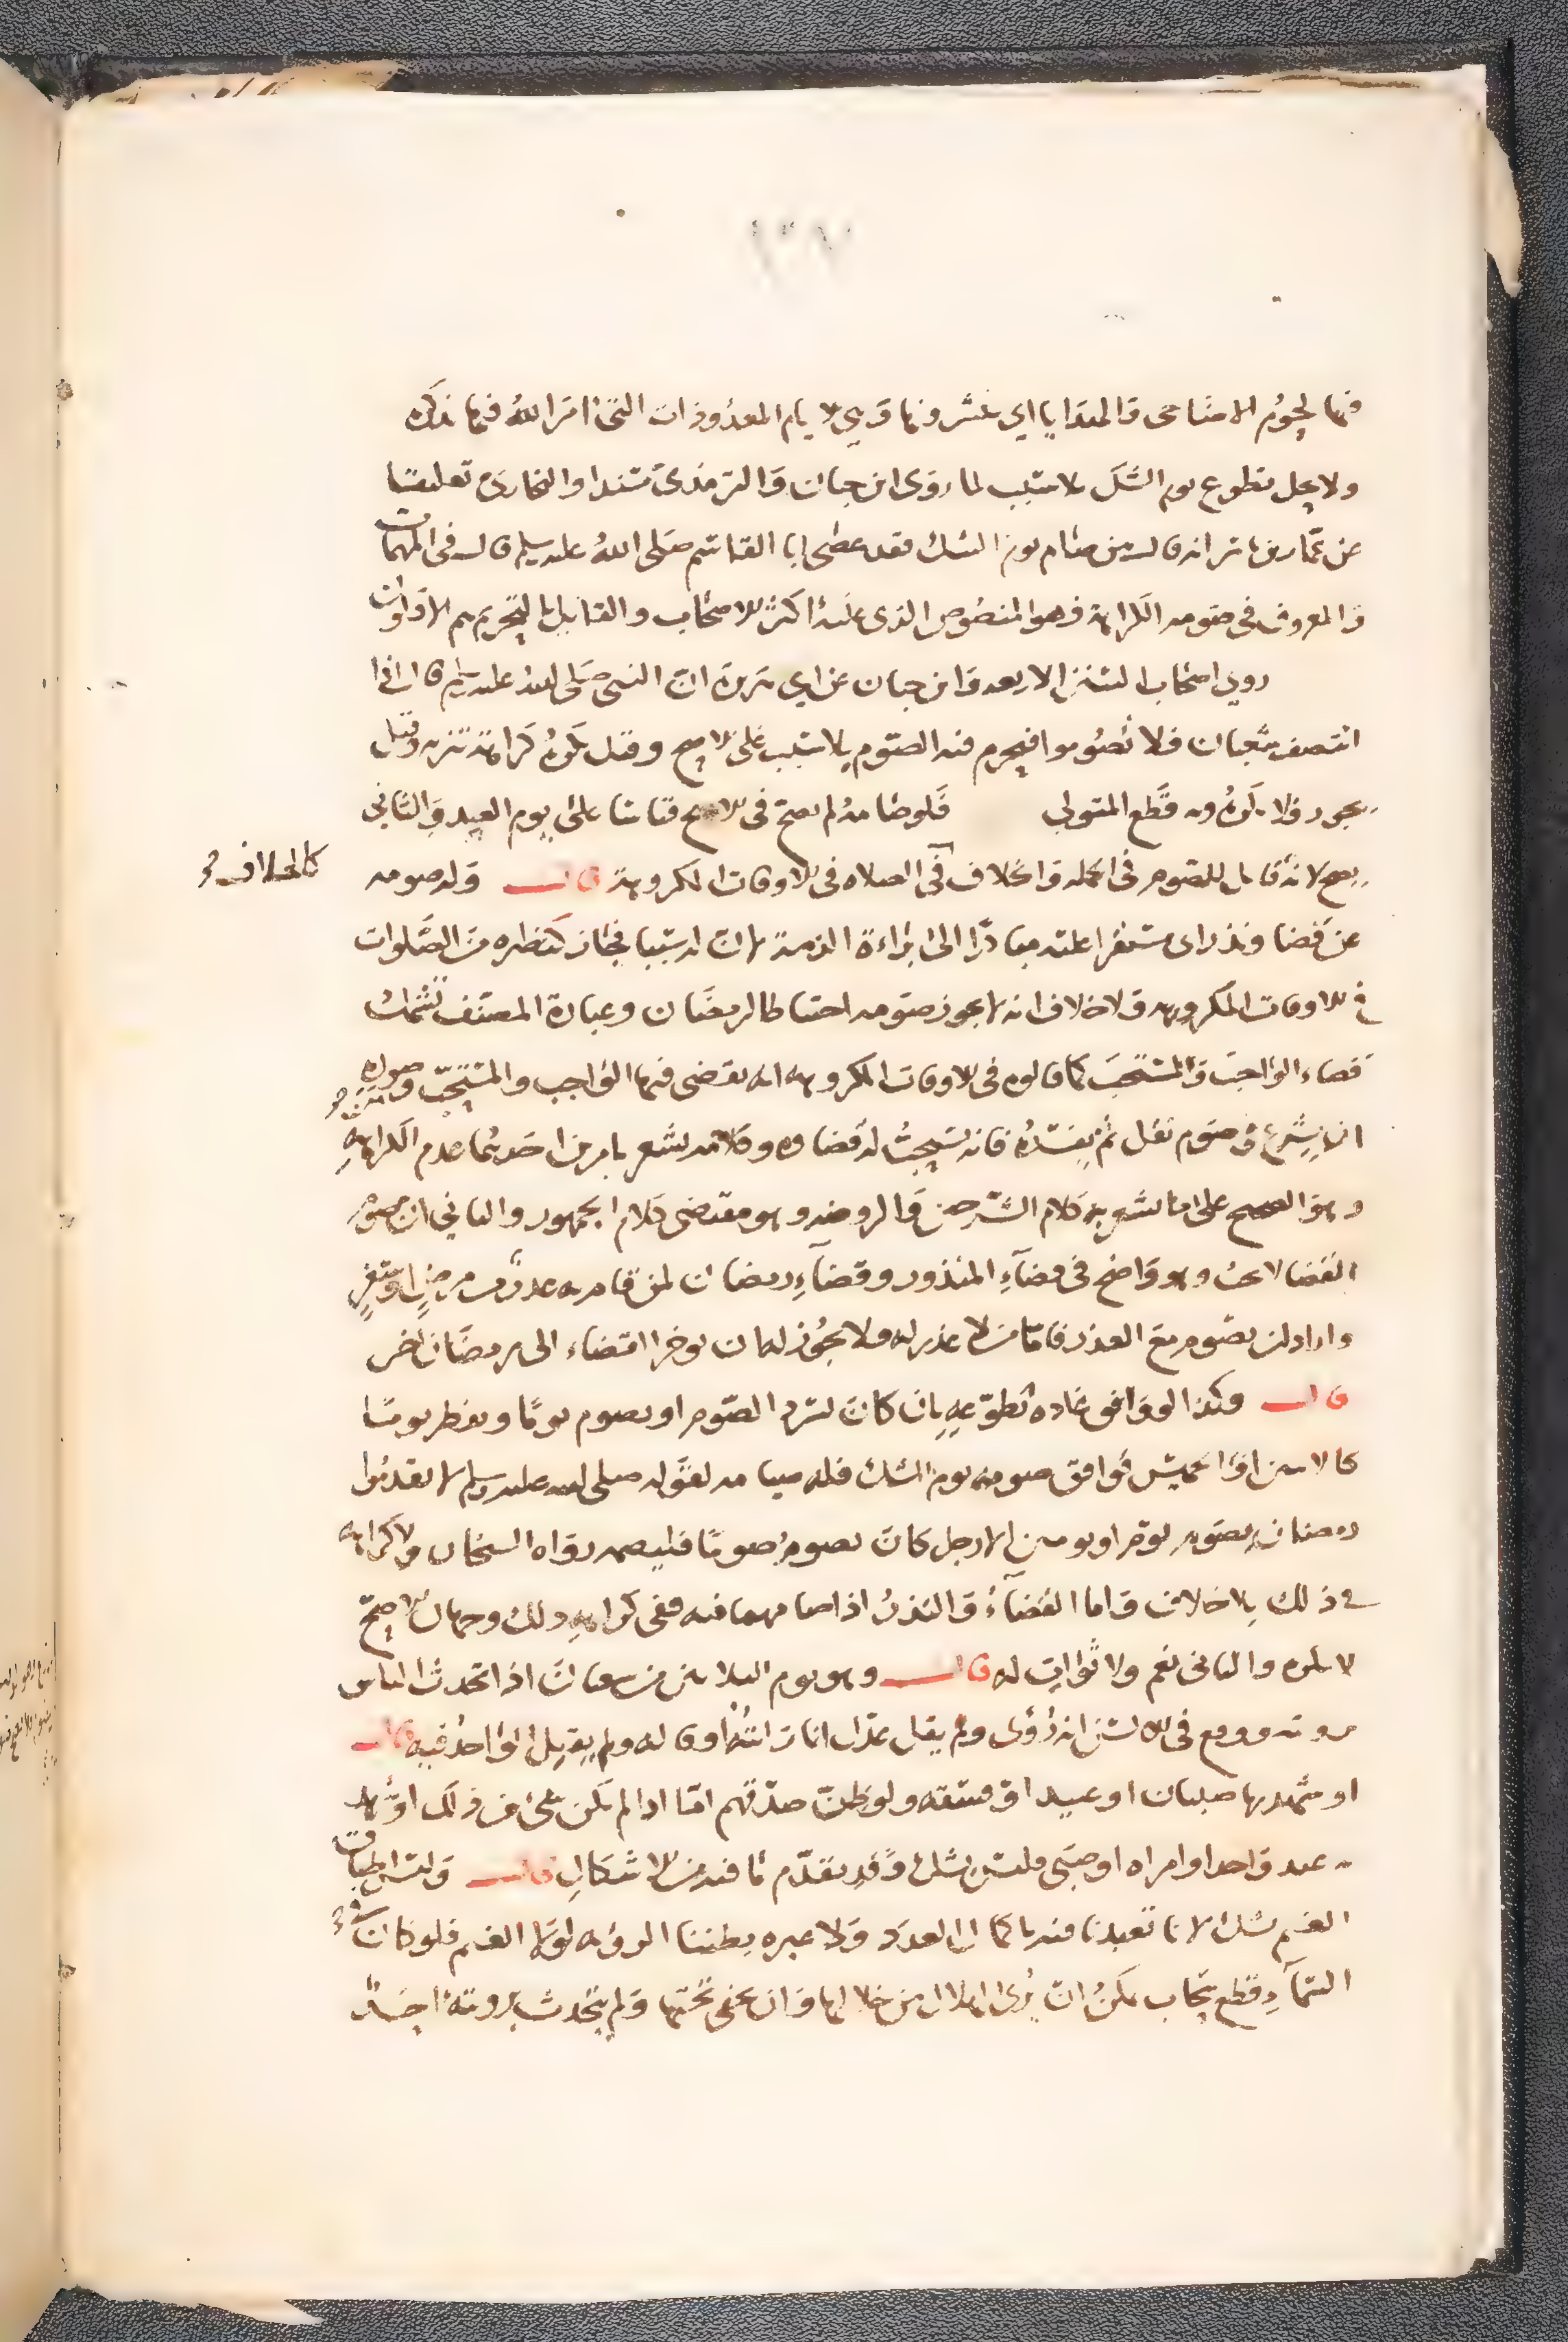 فيها لحوم الاضاحي والهدايا اي تنشر فيها وهي الايام المعدودات التي امر الله فيها بذكره
ولا يحل تطوع يوم الشك بلا سبب لما روى ابن حبان والترمذي مسندا والبخاري تعليقا
عن عمار بن ياسر انه قال من صام يوم الشك فقد عصى ابا القاسم صلى الله عليه وسلم قال في المهمات
والمعروف في صومه الكراهة فهو المنصوص الذي عليه اكثر الاصحاب والقايل بالتحريم هم الاقلون
روى اصحاب السنن الاربعه وابن حبان عن ابي هريرة ان النبي صلى الله عليه وسلم قال اذا
انتصف شعبان فلا تصوموا فيحرم فيه الصوم بلا سبب على الاصح وقيل يكره كراهة تنزيه وقيل
يجوز ولا يكره وبه قطع المتولي فلو صامه لم يصح في الاصح قياسا على يوم العيد والثاني
يصح لانه قابل للصوم في الجمله والخلاف في الصلاه في الاوقات المكروهة قال وله صومه
كالخلاف
عن قضا ونذر اي مستقر عليه مبادرا الى براءة الذمة لان له سببا فجاز كنظيره من الصلوات
في الاوقات المكروهه ولا خلاف انه لا يجوز صومه احتياطا لرمضان وعبارة المصنف تشمل
قضاء الواجب والمستحب كما قالوه في الاوقات المكروهه انه يقضى فيها الواجب والمستحب وصورته
ان يشرع في صوم نفل ثم يفسده فانه يستحب له قضاوه وكلامه يشعر بامرين احدهما عدم الكراهة
وهو الصحيح على ما يشعر به كلام الشرحين والروضه وهو مقتضى كلام الجمهور والثاني ان صوم
القضا لا يجب وهو واضح في قضآء المنذور وقضآء رمضان لمن قام به عذر من مرض او سفر
واراد ان يصوم مع العذر فاما من لا عذر له ولا يجوز له ان يوخر القضاء الى رمضان اخر
قال وكذا لو وافق عادة تطوعه بان كان يسرد الصوم او يصوم يوما ويفطر يوما
كالاثنين او الخميس فوافق صومه يوم الشك فله صيامه لقوله صلى الله عليه وسلم لا تقدموا
رمضان بصوم يوم او يومين الا رجل كان يصوم صوما فليصمه رواه الشيخان ولا كراهه
في ذلك بلا خلاف واما القضآء والنذر اذا صامهما فيه ففي كراهه ذلك وجهان الاصح
لا يكره والثاني نعم ولا ثواب له قال وهو يوم الثلاثين من شعبان اذا تحدث الناس
برويته ووقع في الالسن انه رؤي ولم يقل عدل انا رايته او قاله ولم يقبل الواحد فيه قال
او شهد بها صبيان او عبيد او فسقه ولو ظن صدقهم اما اذا لم يكن شي من ذلك او شهد
به عبد واحد او امراه او صبي فليس بشك وقد تقدم ما فيه من الاشكال قال وليس اطباق
الغيم بشك لانا تعبدنا فيه باكمال العدد ولا عبره بظننا الرؤيه لولا الغيم فلو كان في
السمآء قطع سحاب يمكن ان يرى الهلال من خلالها وان يخفى تحتها ولم يتحدث برويته احد